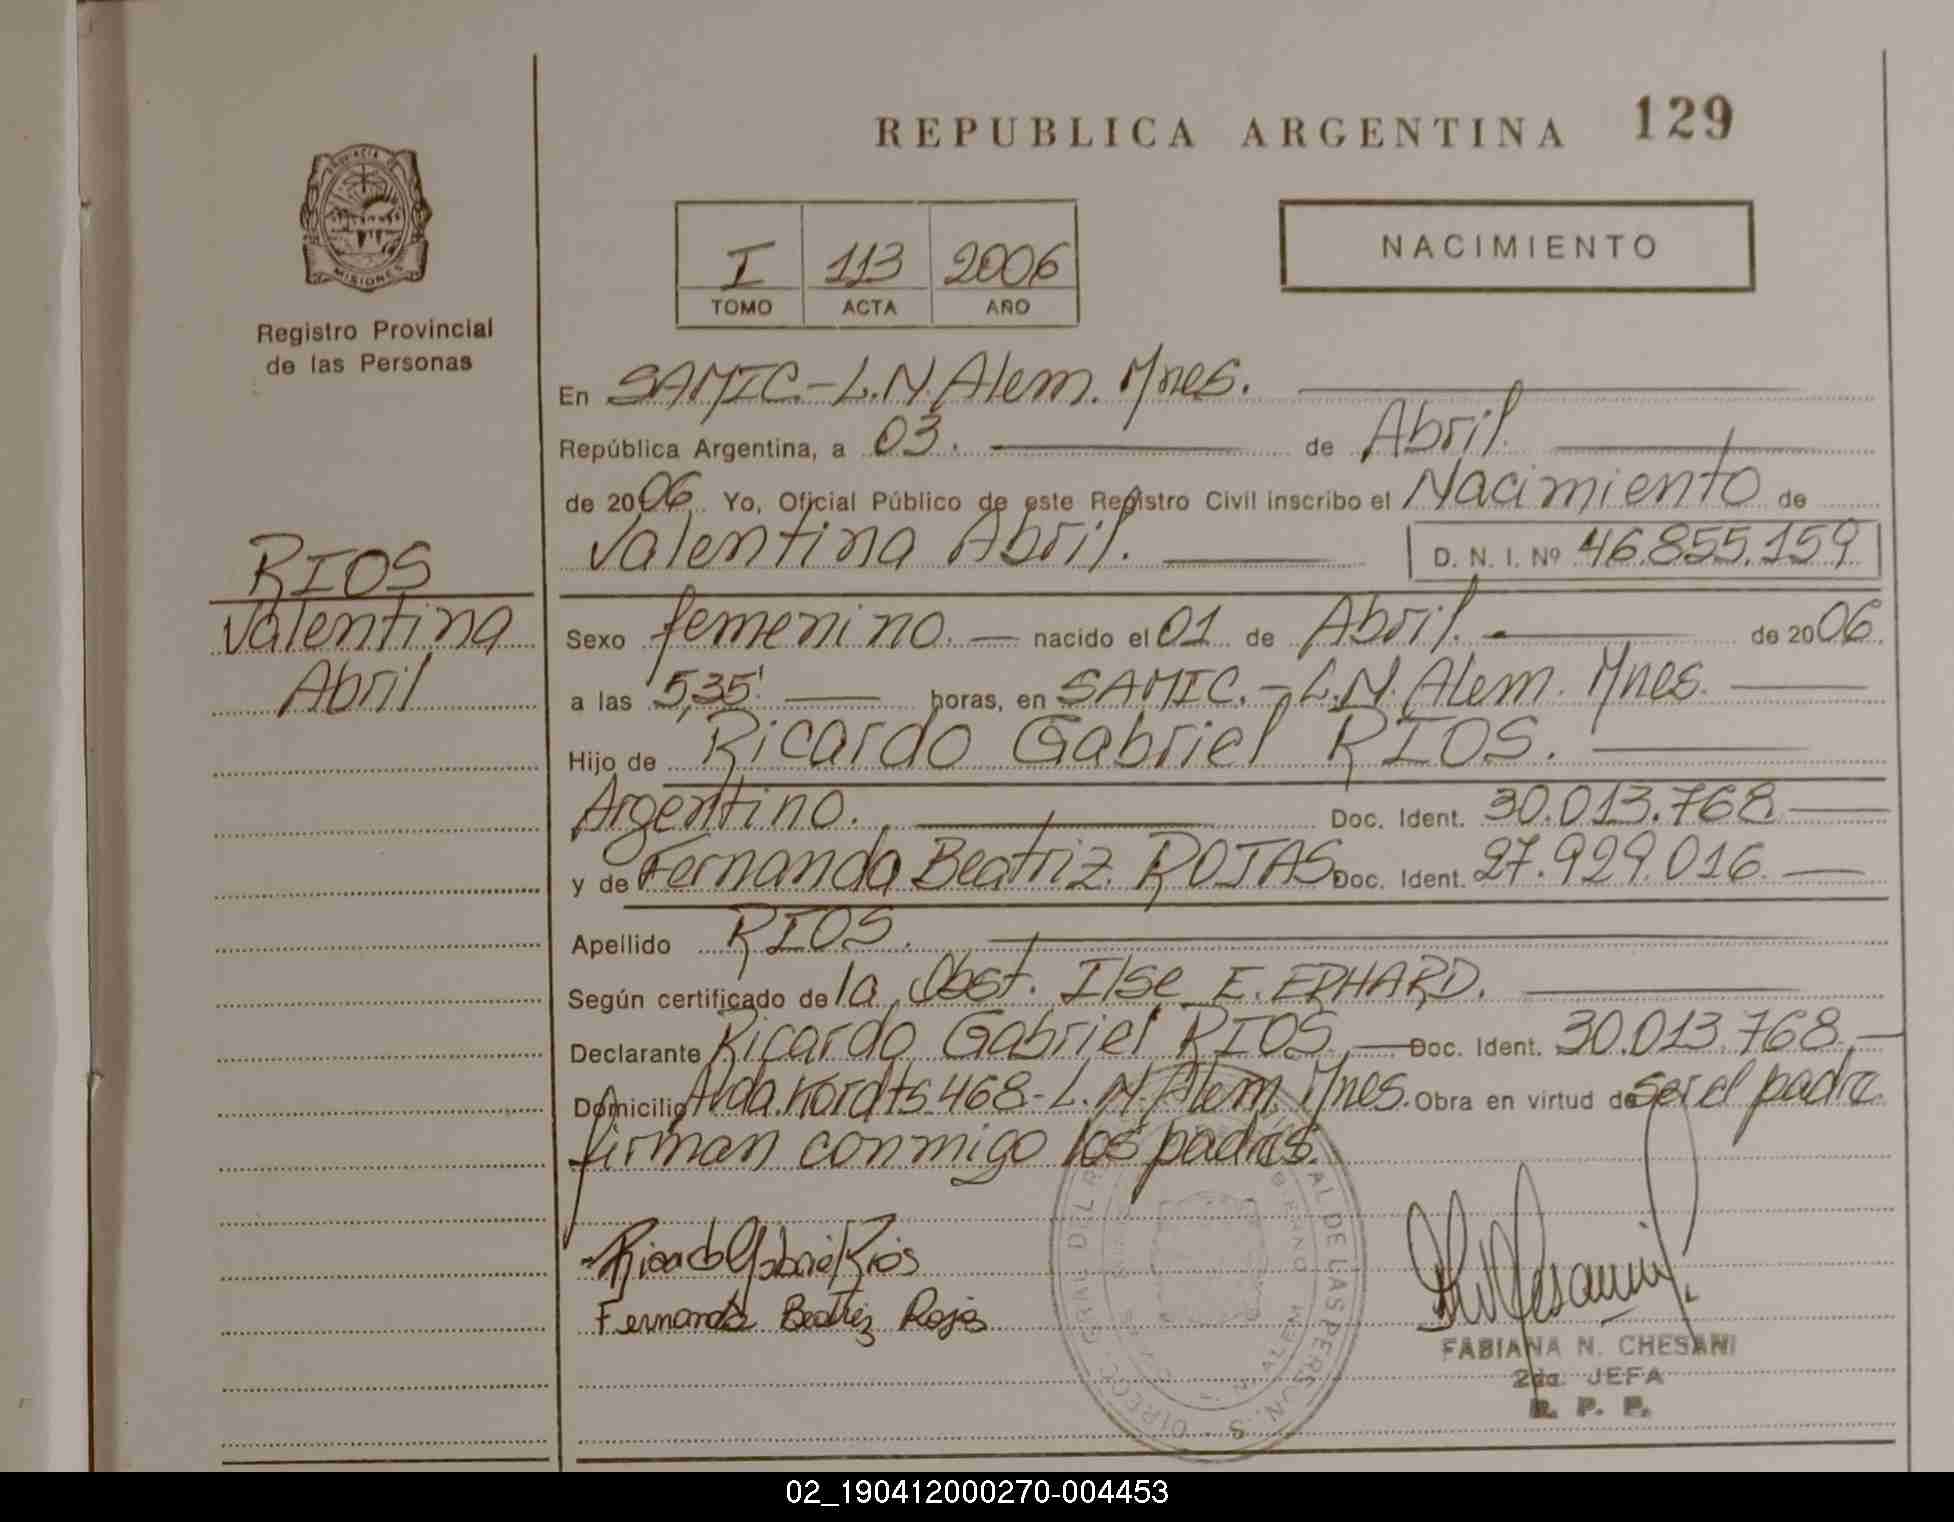 REPUBLICA ARGENTINA 129
PROVINCIA DE
MISIONES
Registro Provincial
de las Personas
I 113 2006
TOMO ACTA AÑO
NACIMIENTO
En SAMIC.-L.N. Alem. Mnes.
República Argentina, a 03. de Abril.
de 2006. Yo, Oficial Público de este Registro Civil inscribo el Nacimiento de
Valentina Abril. D. N. I. Nº 46.855.159
RIOS
Valentina
Abril
Sexo femenino. nacido el 01 de Abril. de 2006.
a las 5,35' horas, en SAMIC.-L.N. Alem. Mnes.
Hijo de Ricardo Gabriel RIOS.
Argentino. Doc. Ident. 30.013.768
y de Fernanda Beatriz ROJAS Doc. Ident. 27.929.016
Apellido RIOS.
Según certificado de la Obst. Ilse E. ERHARD.
Declarante Ricardo Gabriel RIOS Doc. Ident. 30.013.768
Domicilio 468-L.N. Alem, Mnes. Obra en virtud de ser el padre
firman conmigo los padres.
Ricardo Gabriel Rios
Fernanda Beatriz Rojas
FABIANA N. CHESANI
2da. JEFA
R. P. P.
02_190412000270-004453